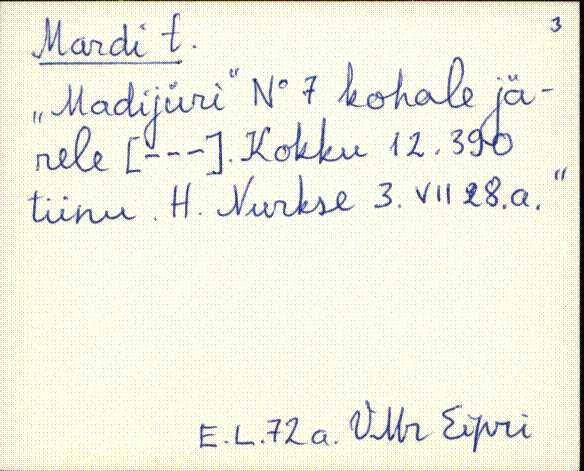 3
Mardi t.
„Madijüri" No 7 kohale jä-
rele [---]. Kokku 12.390
tiinu. H. Nurkse 3. VII 28.a."
E.L.72a. VMr Eipri